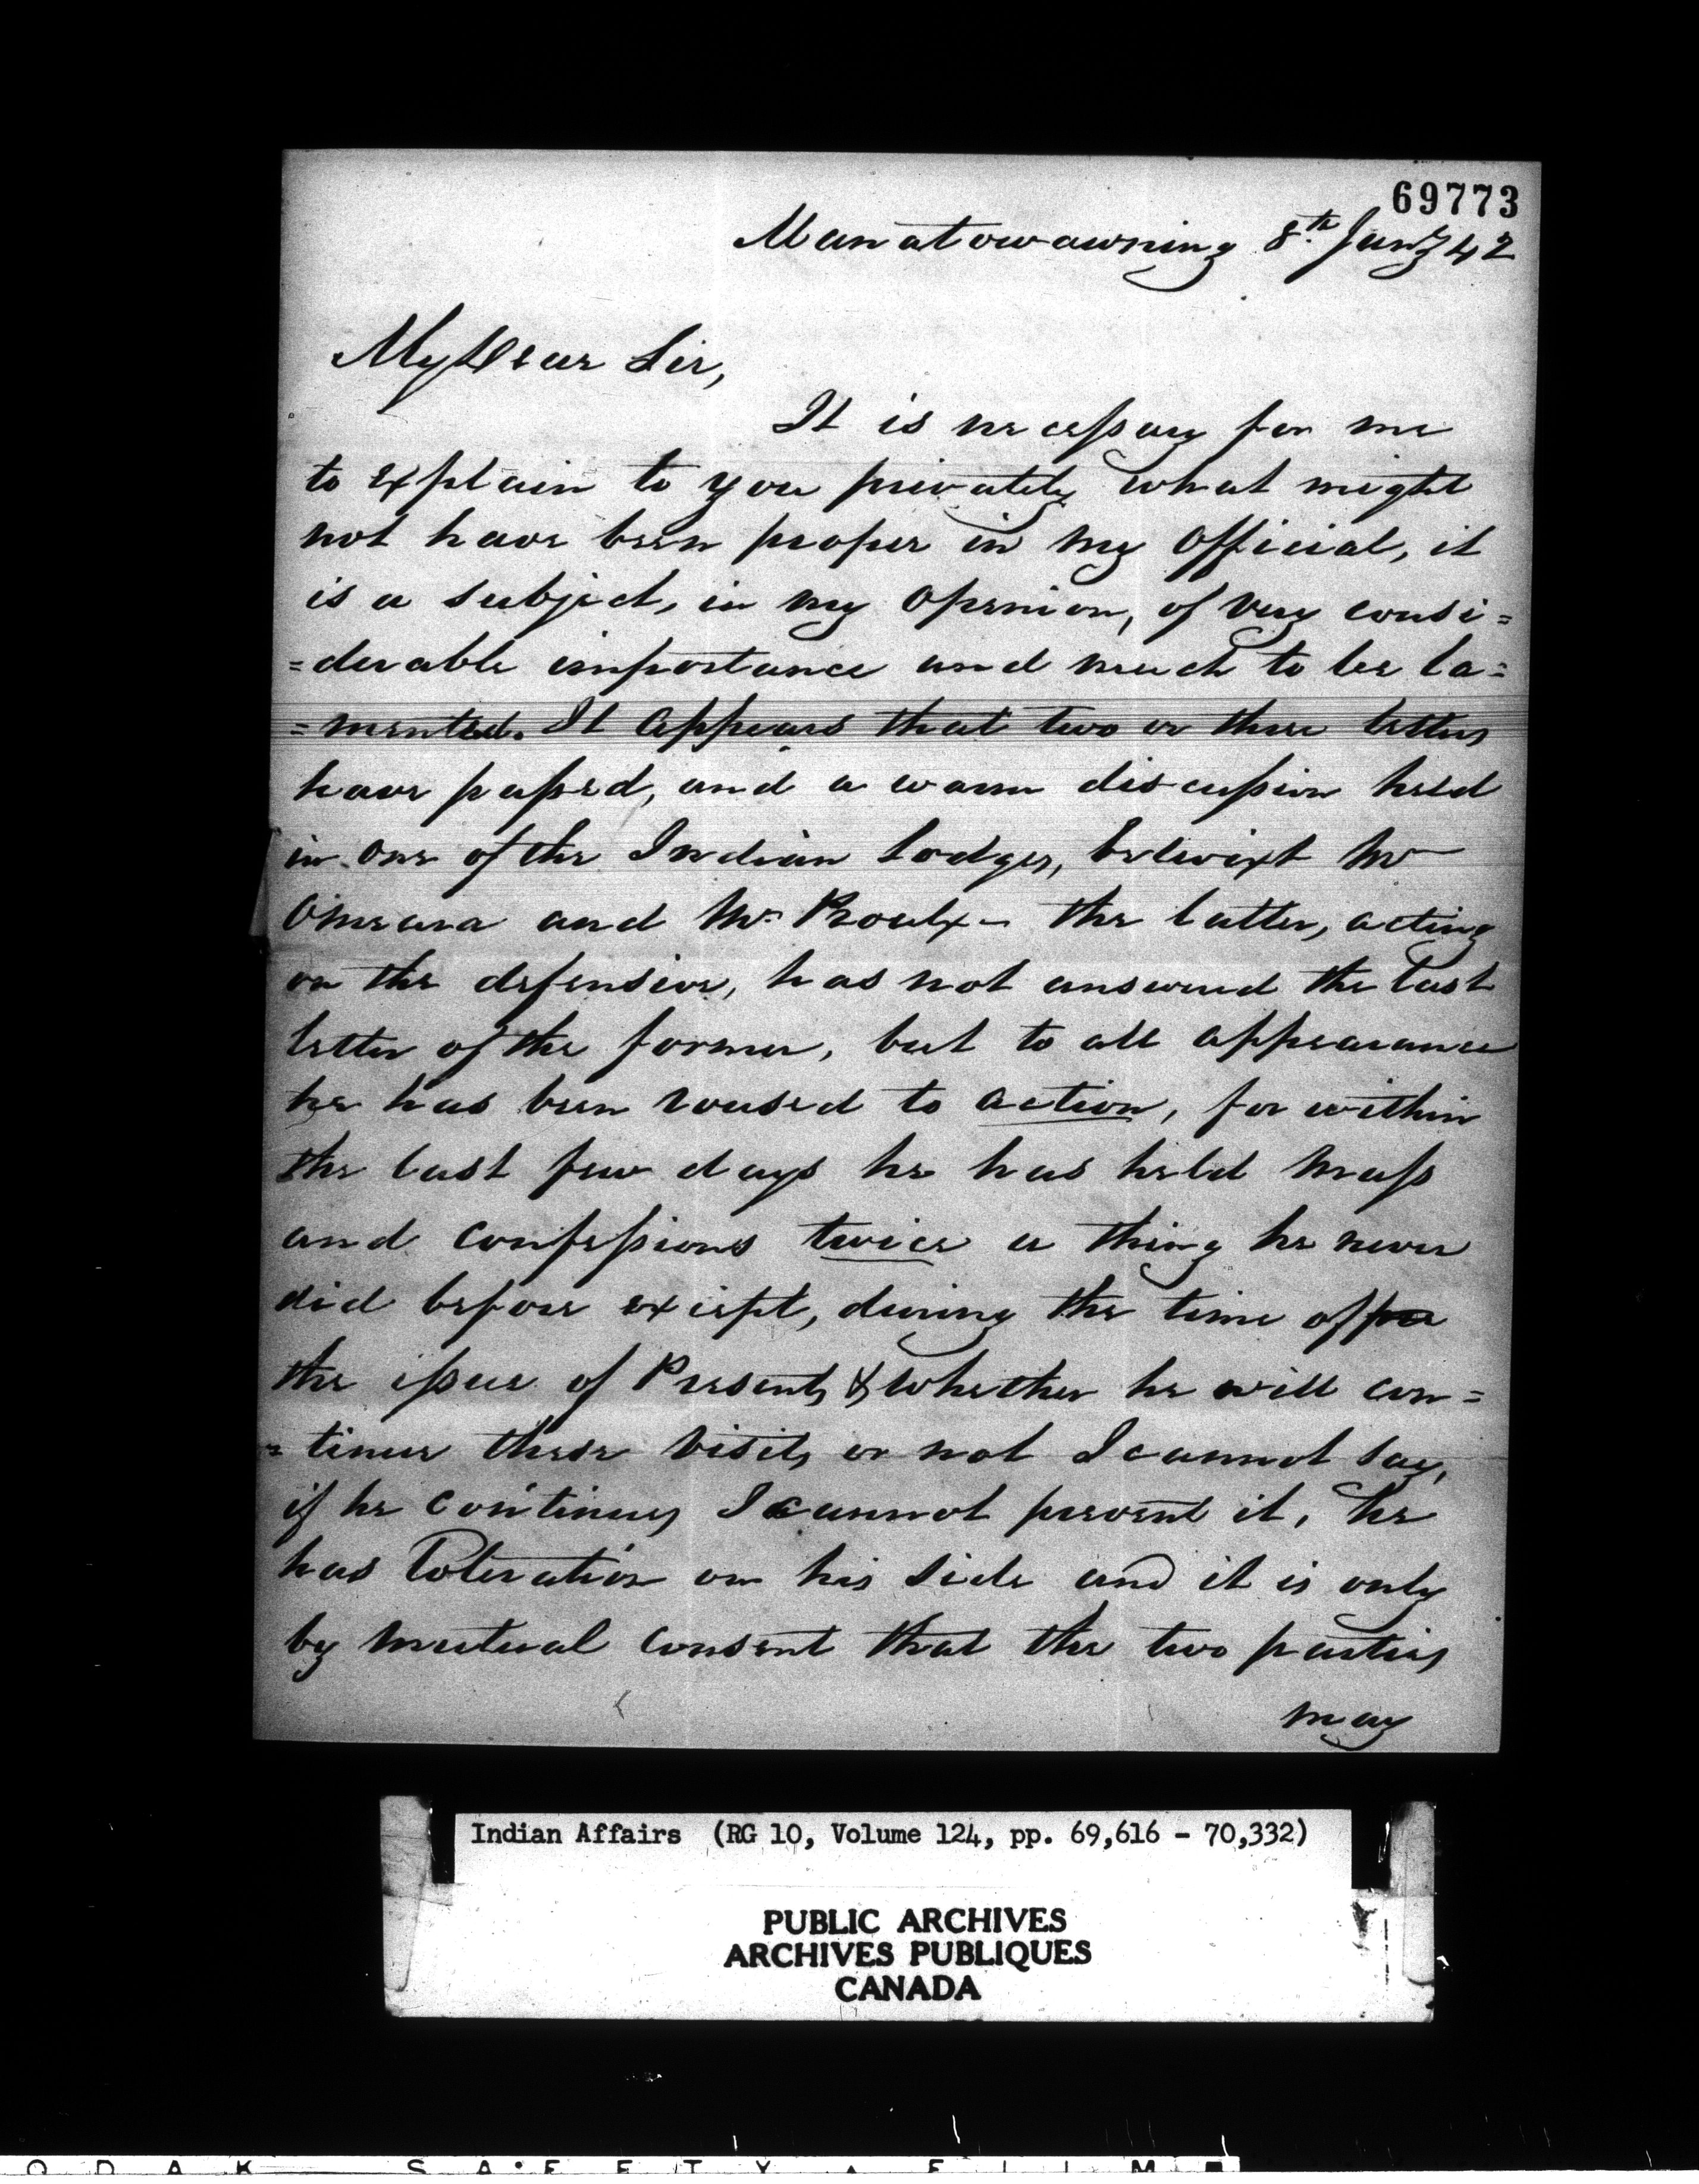 69773
Manatowawning 8th Jany 42
My Dear Sir,
It is necessary for me
to explain to you privately what might
not have been proper in my Official, it
is a subject, in my Openion, of very consi=
=derable importance and much to be la=
=mented. It appears that two or three letters
have passed, and a warm discussion held
in one of the Indian Lodges, betwixt Mr
Omeara and Mr Proulx – the latter, acting
on the defensive, has not answered the last
letter of the former, but to all appearance
he has been roused to action, for within
the last few days he has held Mass
and Confessions twice a thing he never
did before except, during the time of
the issue of Presents, & whether he will con=
=tinue these visits or not I cannot say,
if he continues I cannot prevent it, he
has Toleration on his side and it is only
by mutual consent that the two parties
may
Indian Affairs (RG 10, Volume 124, pp. 69,616 - 70,332)
PUBLIC ARCHIVES
ARCHIVES PUBLIQUES
CANADA